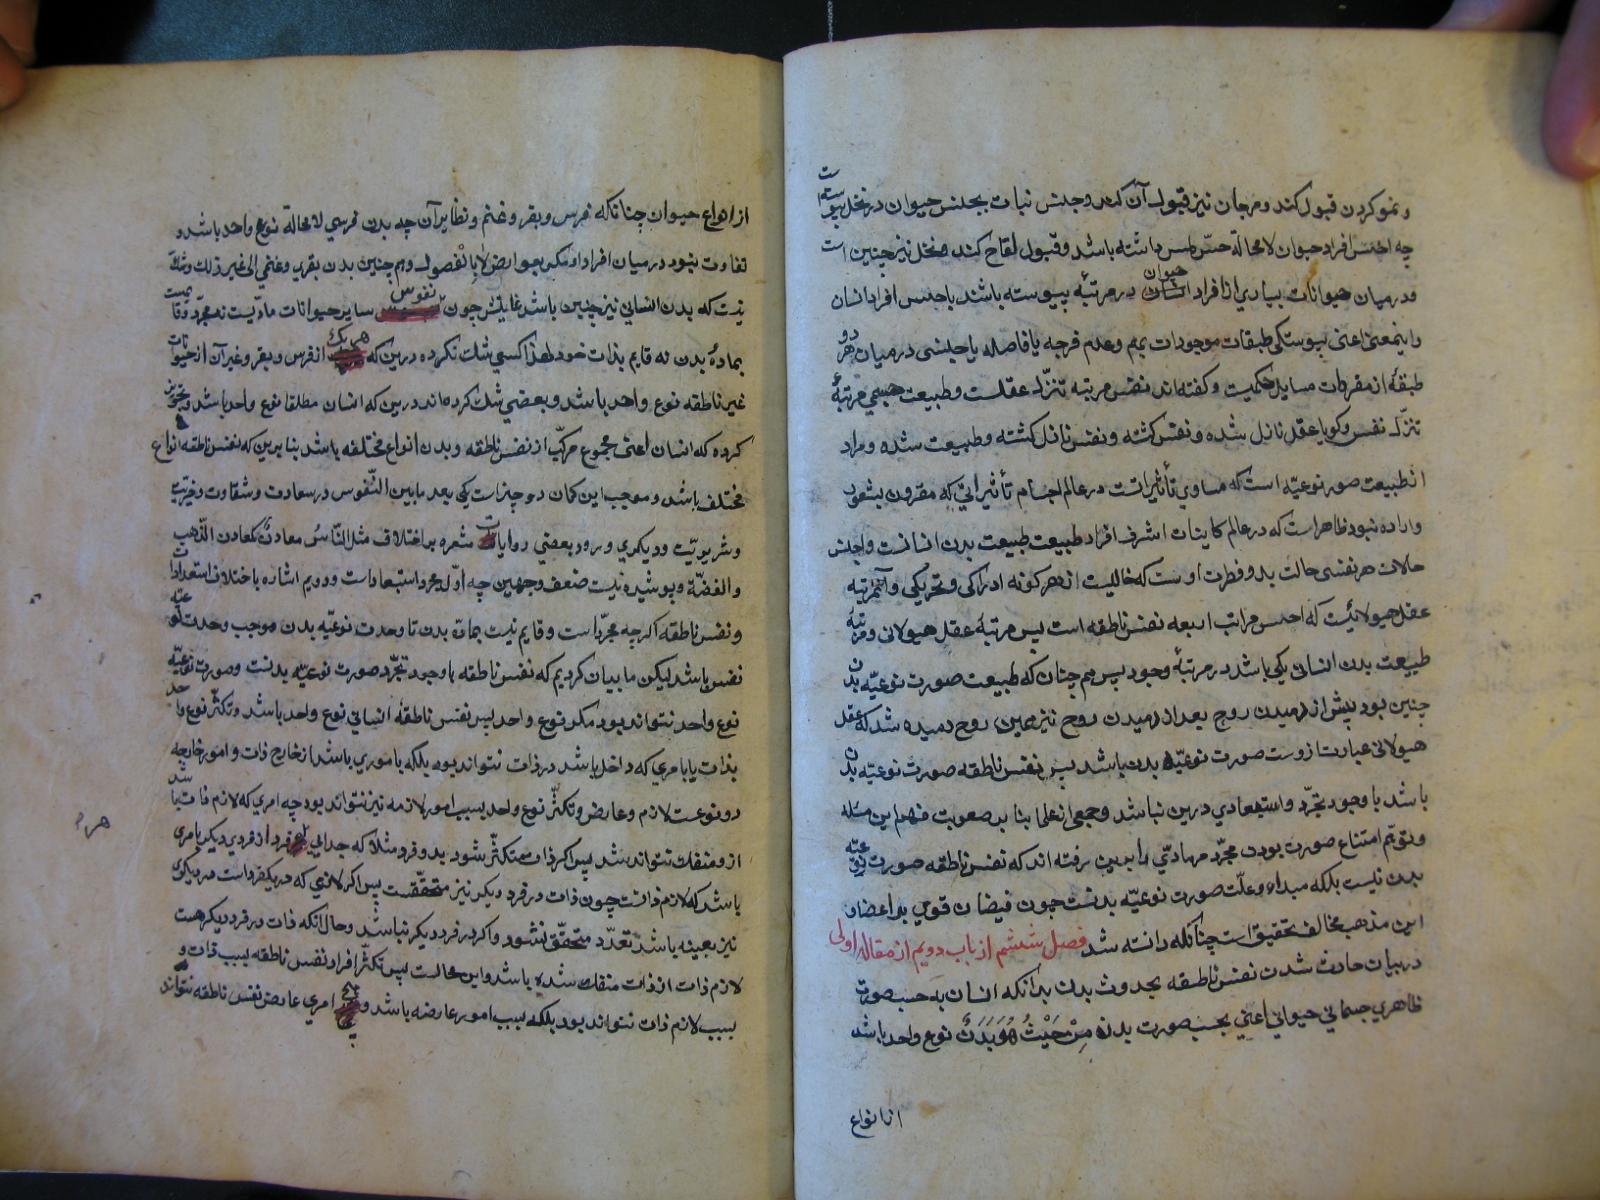 و نمو کردن قبول کند و مرجان نیز قبول آن کند و جنس نبات بجنس حیوان در نخل پیوسته است
چه اخس افراد حیوان لا محالة حس لمس داشته باشد و قبول لقاح کند و نخل نیز چنین است
و در میان حیوانات بسیاری از افراد حیوان در مرتبۀ پیوسته باشند باخس افراد انسان
و اینمعنی اعنی پیوستکی طبقات موجودات بهم و عدم فرجه یا فاصله یا جنسی در میان هر دو
طبقۀ از مقررات مسایل حکمیست و کفته اند نفس مرتبه تنزل عقلست و طبیعت جسمی مرتبۀ
تنزل نفس و کویا عقل نازل شده و نفس کشته و نفس نازل کشته و طبیعت شده و مراد
از طبیعت صور نوعیه است که مساوی تأثیراتست در عالم اجسام تأثیراتی که مقرون بشعور
و اراده نبود ظاهر است که در عالم کاینات اشرف افراد طبیعت طبیعت بدن انسانست و اخس
حالات هر نفسی حالت بدو فطرت اوست که خالیست از هر کونه ادراکی و تحریکی و آنمرتبه
عقل هیولانیست که اخس مراتب اربعه نفس ناطقه است پس مرتبۀ عقل هیولانی و مرتبۀ
طبیعت بدن انسانی یکی باشد در مرتبۀ وجود پس هم چنان که طبیعت صورت نوعیه بدن
جنین بود پیش از دمیدن روح بعد از دمیدن روح نیز همین روح دمیده شد که عقل
هیولانی عبارت ازوست صورت نوعیه بدن باشد پس نفس ناطقه صورت نوعیه بدن
باشد با وجود تجرد و استبعادی درین نباشد و جمعی از علما بنا بر صعوبت فهم این مسئله
و توهم امتناع صورت بودن مجرد مر مادی را بدین رفته اند که نفس ناطقه صورت نوعیه
بدن نیست بلکه مبداء و علت صورت نوعیه بدنست چون فیضان قوی بر اعضا و
این مذهب مخالف تحقیق است چنانکه دانسته شد فصل ششم از باب دویم از مقاله اولی
در بیان حادث شدن نفس ناطقه بحدوث بدن بدانکه انسان به حسب صورت
ظاهری جسمانی حیوانی اعنی بحسب صورت بدن مِنْ حَیْثُ هُوَ بَدَنٌ نوع واحد باشد
از انواع
از انواع حیوان چنانکه فرس و بقر و غنم و نظایر آن چه بدن فرسی لا محالة نوع واحد باشد و
تفاوت نبود در میان افراد او مکر بعوارض لا بالْفصول و هم چنین بدن بقری و غنمی الی غیر ذلک و شک
نیست که بدن انسانی نیز چنین باشد غایتش چون نفوس سایر حیوانات مادیست نه مجرد و قایمست
بمادۀ بدن نه قایم بذات خود لهذا کسی شک نکرده درین که هر یک از فرس و بقر و غیر آن از حیوانات
غیر ناطقه نوع واحد باشد و بعضی شک کرده اند درین که انسان مطلقا نوع واحد باشد و تجویز
کرده که انسان اعنی مجموع مرکب از نفس ناطقه و بدن انواع مختلفه باشد بنا برین که نفس ناطقه انواع
مختلف باشد و موجب این کمان دو چیز است یکی بعد ما بین النفوس در سعادت و شقاوت و خیریت
و شریریت و دیکری ورود بعضی روایات مشعره بر اختلاف مثل النّاسُ معادنُ کمعادن الذهب
والفضّة و پوشیده نیست ضعف وجهین چه اوّل مجرد استبعاد است و دویم اشاره باختلاف استعدادات
و نفس ناطقه اکر چه مجرد است و قایم نیست بماده بدن تا وحدت نوعیه بدن موجب وحدت نوعیه
نفس باشد لیکن ما بیان کردیم که نفس ناطقه با وجود تجرد صورت نوعیه بدنست و صورت نوعیه
نوع واحد نتواند بود مکر نوع واحد پس نفس ناطقه انسانی نوع واحد باشد و تکثر نوع واحد
بذات یا بامری که داخل باشد در ذات نتواند بود بلکه باموری باشد از خارج ذات و امور خارجه
دو نوعست لازم و عارض و تکثر نوع واحد بسبب امور لازمه نیز نتواند بود چه امری که لازم ذات باشد
ازو منفک نتواند شد پس اکر ذات متکثر شود بدو فرد مثلا که جدایی فرد از فردی دیکر بامری
باشد که لازم ذاتست چون ذات در فرد دیکر نیز متحققست پس اکر لازمی که در یکفرد است در دیکری
نیز بعینه باشد تعدد متحقق نشود و اکر در فرد دیکر نباشد و حال انکه ذات در فرد دیکر هست
لازم ذات از ذات منفک شده باشد و این محالست پس تکثر افراد نفس ناطقه بسبب ذات و
بسبب لازم ذات نتواند بود بلکه بسبب امور عارضه باشد و هیچ امری عارض نفس ناطقه نتواند